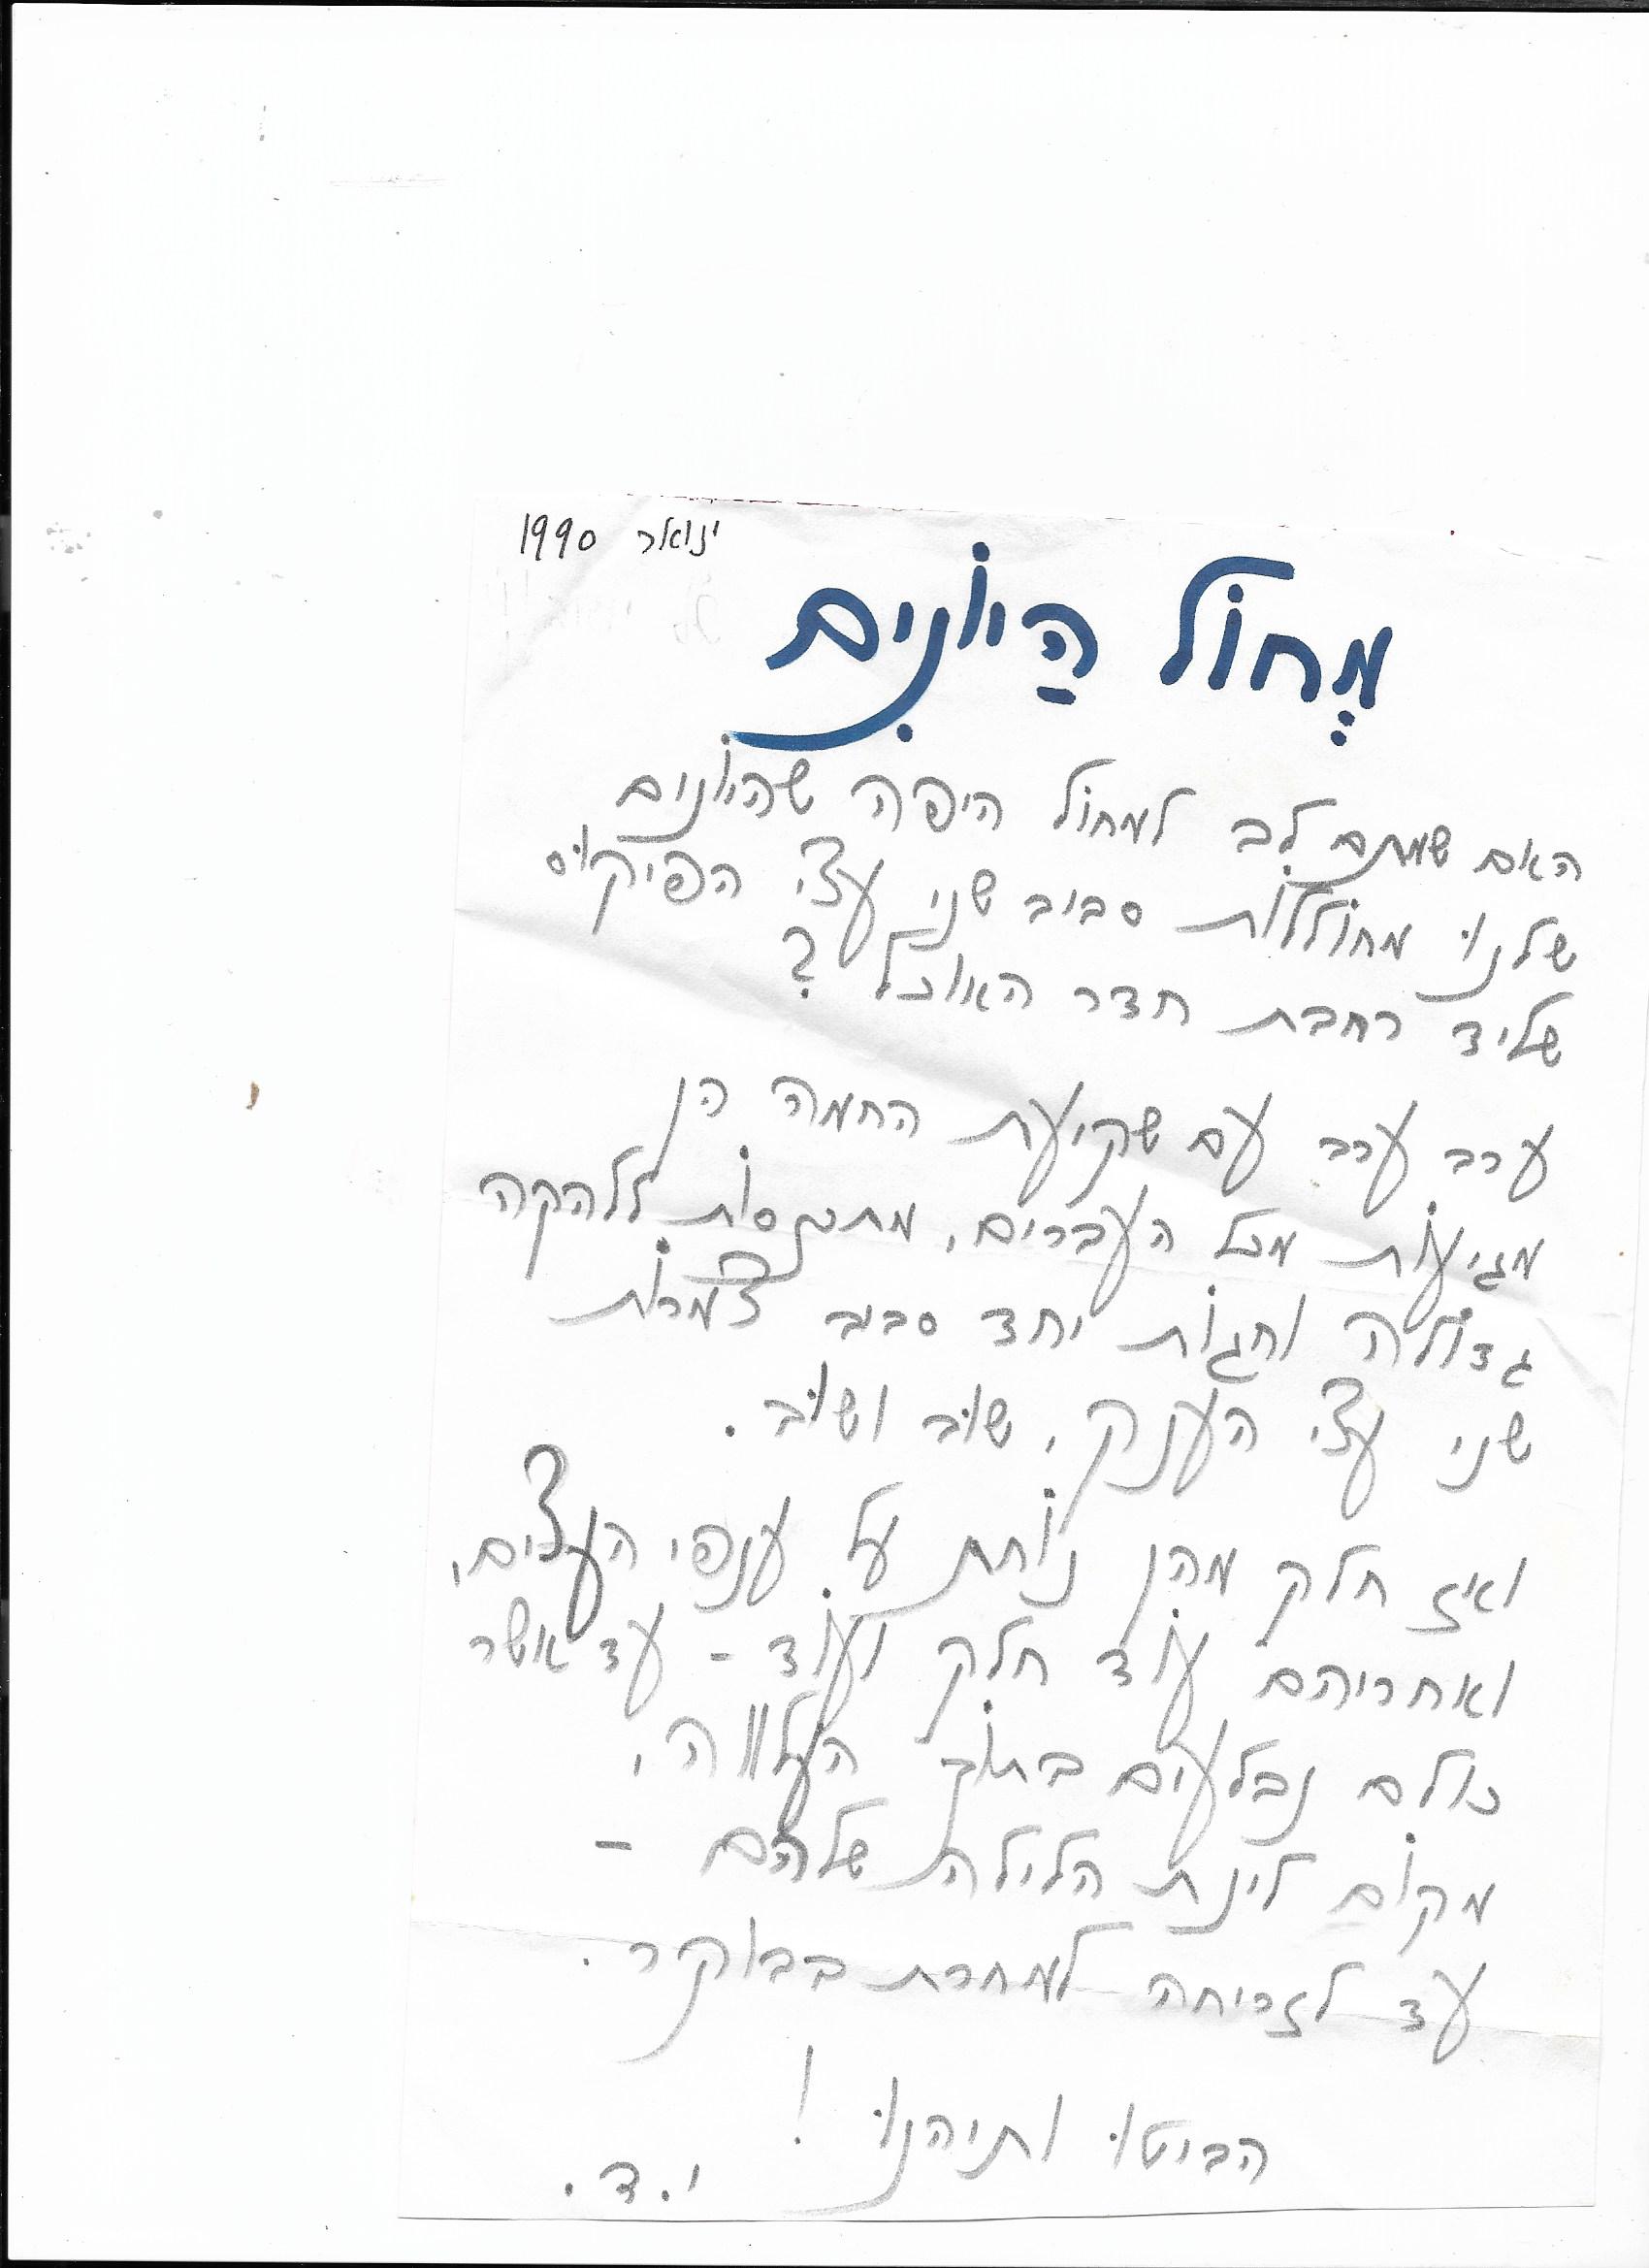 ינואר 1990
מְחוֹל הַיּוֹנִים
האם שמתם לב למחול היפה שהיונים
שלנו מחוללות סביב שני עצי הפיקוס
שליד רחבת חדר האוכל?
ערב ערב עם שקיעת החמה הן
מגיעות מכל העברים, מתכנסות ללהקה
גדולה וחגות יחד סביב צמרות
שני עצי הענק, שוב ושוב.
ואז חלק מהן נוחת על ענפי העצים,
ואחריהם עוד חלק ועוד - עד אשר
כולם נבלעים בתוך העלווה,
מקום לינת הלילה שלהם -
עד לזריחה למחרת בבוקר.
הביטו ותיהנו!
י.ד.